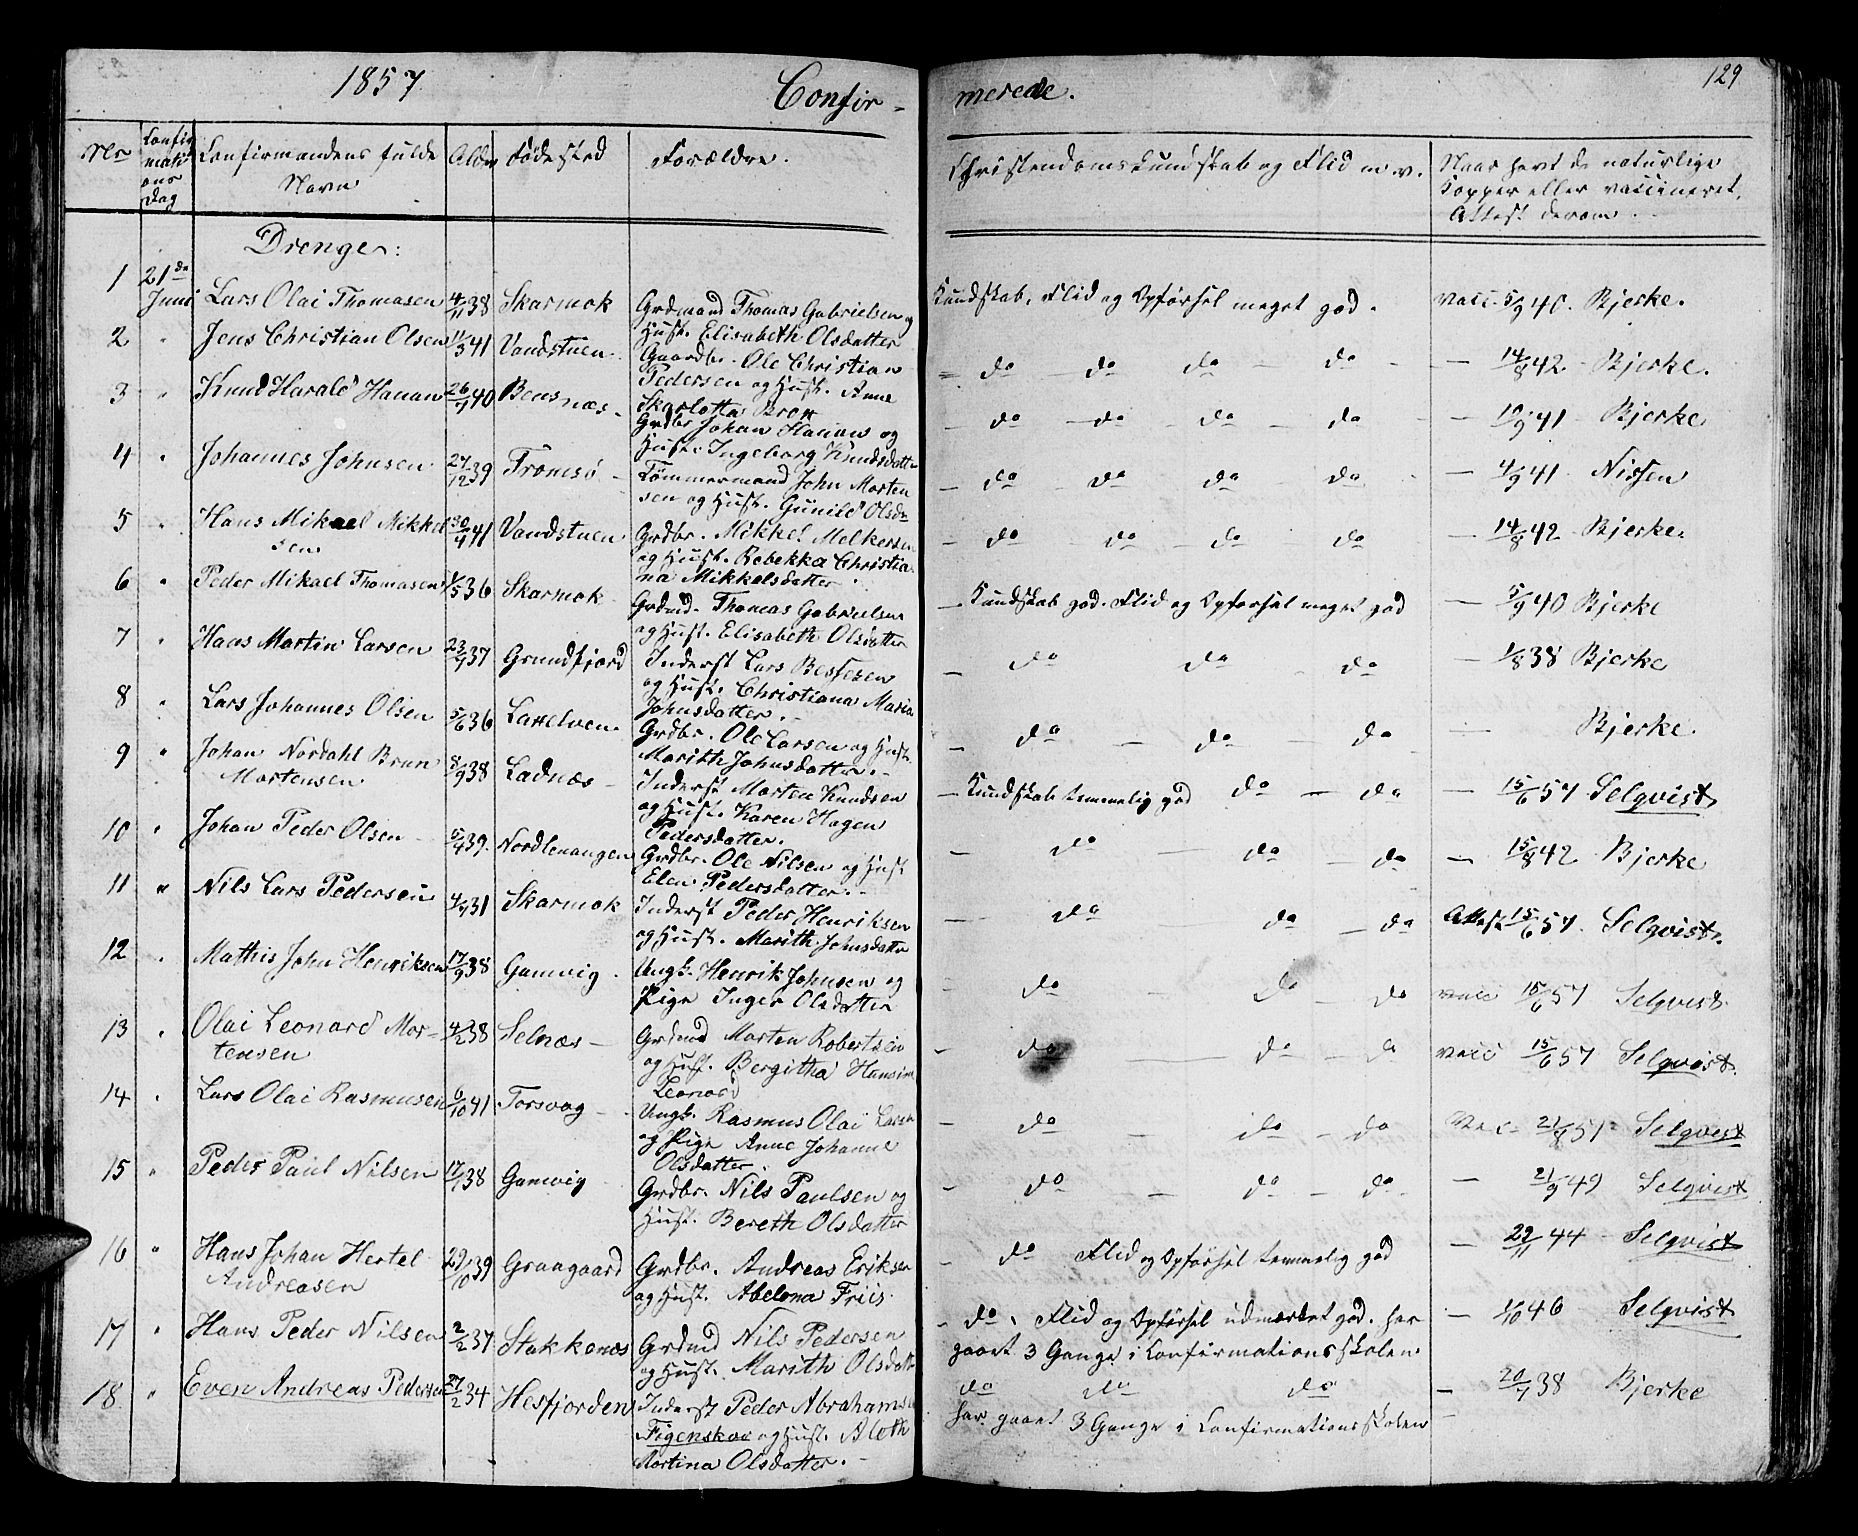 1857
Confir-
merede.
129
No
Confir
mati
ons
Dag
Confirmandens fulde
Navn
Alder
Fødested
Forældre.
Christendoms Kundskab og Flid m. v.
Naar havt de naturlige
Kopper eller vaccineret.
Attest derom.
Drenger:
1 21de Juni Lars Olai Thomasen 4/11 38 Skarmok
Grdmand Thomas Gabrielsen og
Hust. Elisabeth Olsdatter
Kundskab, Flid og Opførsel meget god.
vacc. 5/9 40. Bjerke.
2 " Jens Christian Olsen 11/3 41 Vandstuen
Gaardbr. Ole Christian
Pedersen og Hust. Anne
Skarlotta Brox
do do do do
14/8 42. Bjerke.
3 " Knud Harald Hanan 26/1 40 Bensnæs
Grdbr Johan Hanan og
Hust. Ingeborg Knudsdatter
do do do do
19/9 41 Bjerke
4 " Johannes Johnsen 27/12 39 Tromsø
Tømmermand John Morten
sen og Hust. Gunild Olsd
do do do do
4/9 41 Nissen
5 " Hans Mikael Mikkel
sen 30/4 41 Vandstuen
Grdbr. Mikkel Melkersen
og Hust. Rebekka Christia
na Mikkelsdatter
do do do do
14/8 42 Bjerke.
6 " Peder Mikael Thomasen 1/5 36 Skarmok
Grdmd. Thomas Gabrielsen
og Hust. Elisabeth Olsdatter
Kundskab god. Flid og Opførsel meget god
5/9 40 Bjerke
7 " Hans Martin Larsen 23/9 37 Grundfjord
Inderst Lars Bessesen
og Hust. Christiana Maria
Johnsdatter.
do do do
1/8 38 Bjerke
8 " Lars Johannes Olsen 5/6 36 Laxelven
Grdbr. Ole Larsen og Hust.
Marith Johnsdatter.
do do do
Bjerke.
9 " Johan Nordahl Brun
Mortensen 8/9 38 Ladnæs
Inderst Morten Knudsen
og Hust. Karen Hagen
Pedersdatter.
Kundskab temmelig god do do
15/6 57 Selqvist
10 " Johan Peder Olsen 5/4 39. Nordlenangen
Grdbr. Ole Nilsen og Hust
Elen Pedersdatter.
do do do
15/8 42 Bjerke
11 " Nils Lars Pedersen 4/9 31 Skarmok
Inderst Peder Henriksen
og Hust. Marith Johnsdattr
do do do
Attest 15/6 57. Selqvist.
12 " Mathis John Henriksen 17/9 38 Gamvig
Ungk. Henrik Johnsen og
Pige Inger Olsdatter
do do do
vacc 15/6 57 Selqvist
13 " Olai Leonard Mor-
tensen 4/2 38 Selnæs
Grdmd Morten Robertsen
og Hust. Bergitha Hansine
Leonard
do do do
vacc 15/6 57 Selqvist.
14 " Lars Olai Rasmusen 6/10 41 Torsvog
Ungk. Rasmus Olai Larsen
og Pige Anne Johanne
Olsdatter.
do do do
Vac. 21/8 51 Selqvist
15 " Peder Paul Nilsen 17/1 38 Gamvig
Grdbr. Nils Paulsen og
Hust. Bereth Olsdatter
do do do
21/9 49 Selqvist
16 " Hans Johan Hertel
Andreasen 29/10 39 Graagaard
Grdbr. Andreas Eriksen
og Hust. Abelona Friis.
do Flid og Opførsel temmelig god
29/11 44 Selqvist
17 " Hans Peder Nilsen 2/2 37 Stakkenæs
Grdmd Nils Pedersen
og Hust. Marith Olsdatt
do. Flid og Opførsel udmærket god. har
gaaet 3 Gange i Confirmationsskolen
1/10 46 Selqvist
18 " Even Andreas Pedersen 27/2 34 Hesfjorden
Inderst Peder Abrahams
Figenskau og Hust. Aleth
Martina Olsdatter.
do do do
har gaaet 3 Gange i Confirmationsskolen
20/7 38 Bjerke